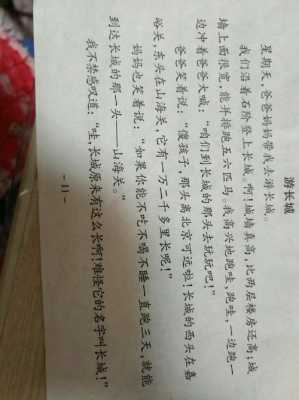 游长城
星期天，爸爸妈妈带我去游长城。
我们沿着石阶登上长城。啊！城墙真高，比两层楼房还高；城
墙上面很宽，能并排跑五六匹马。我高兴地跑哇，跑哇，一边跑一
边冲着爸爸大喊：“咱们到长城的那头去玩玩吧！”
爸爸笑着说：“傻孩子，那头离北京可远啦！长城的西头在嘉
峪关，东头在山海关，它有一万二千多里长呢！”
妈妈也笑着说：“如果你能不吃不喝不睡一直跑三天，就能
到达长城的那一头——山海关。”
我不禁感叹道：“哇，长城原来有这么长啊！难怪它的名字叫长城！”
－11－